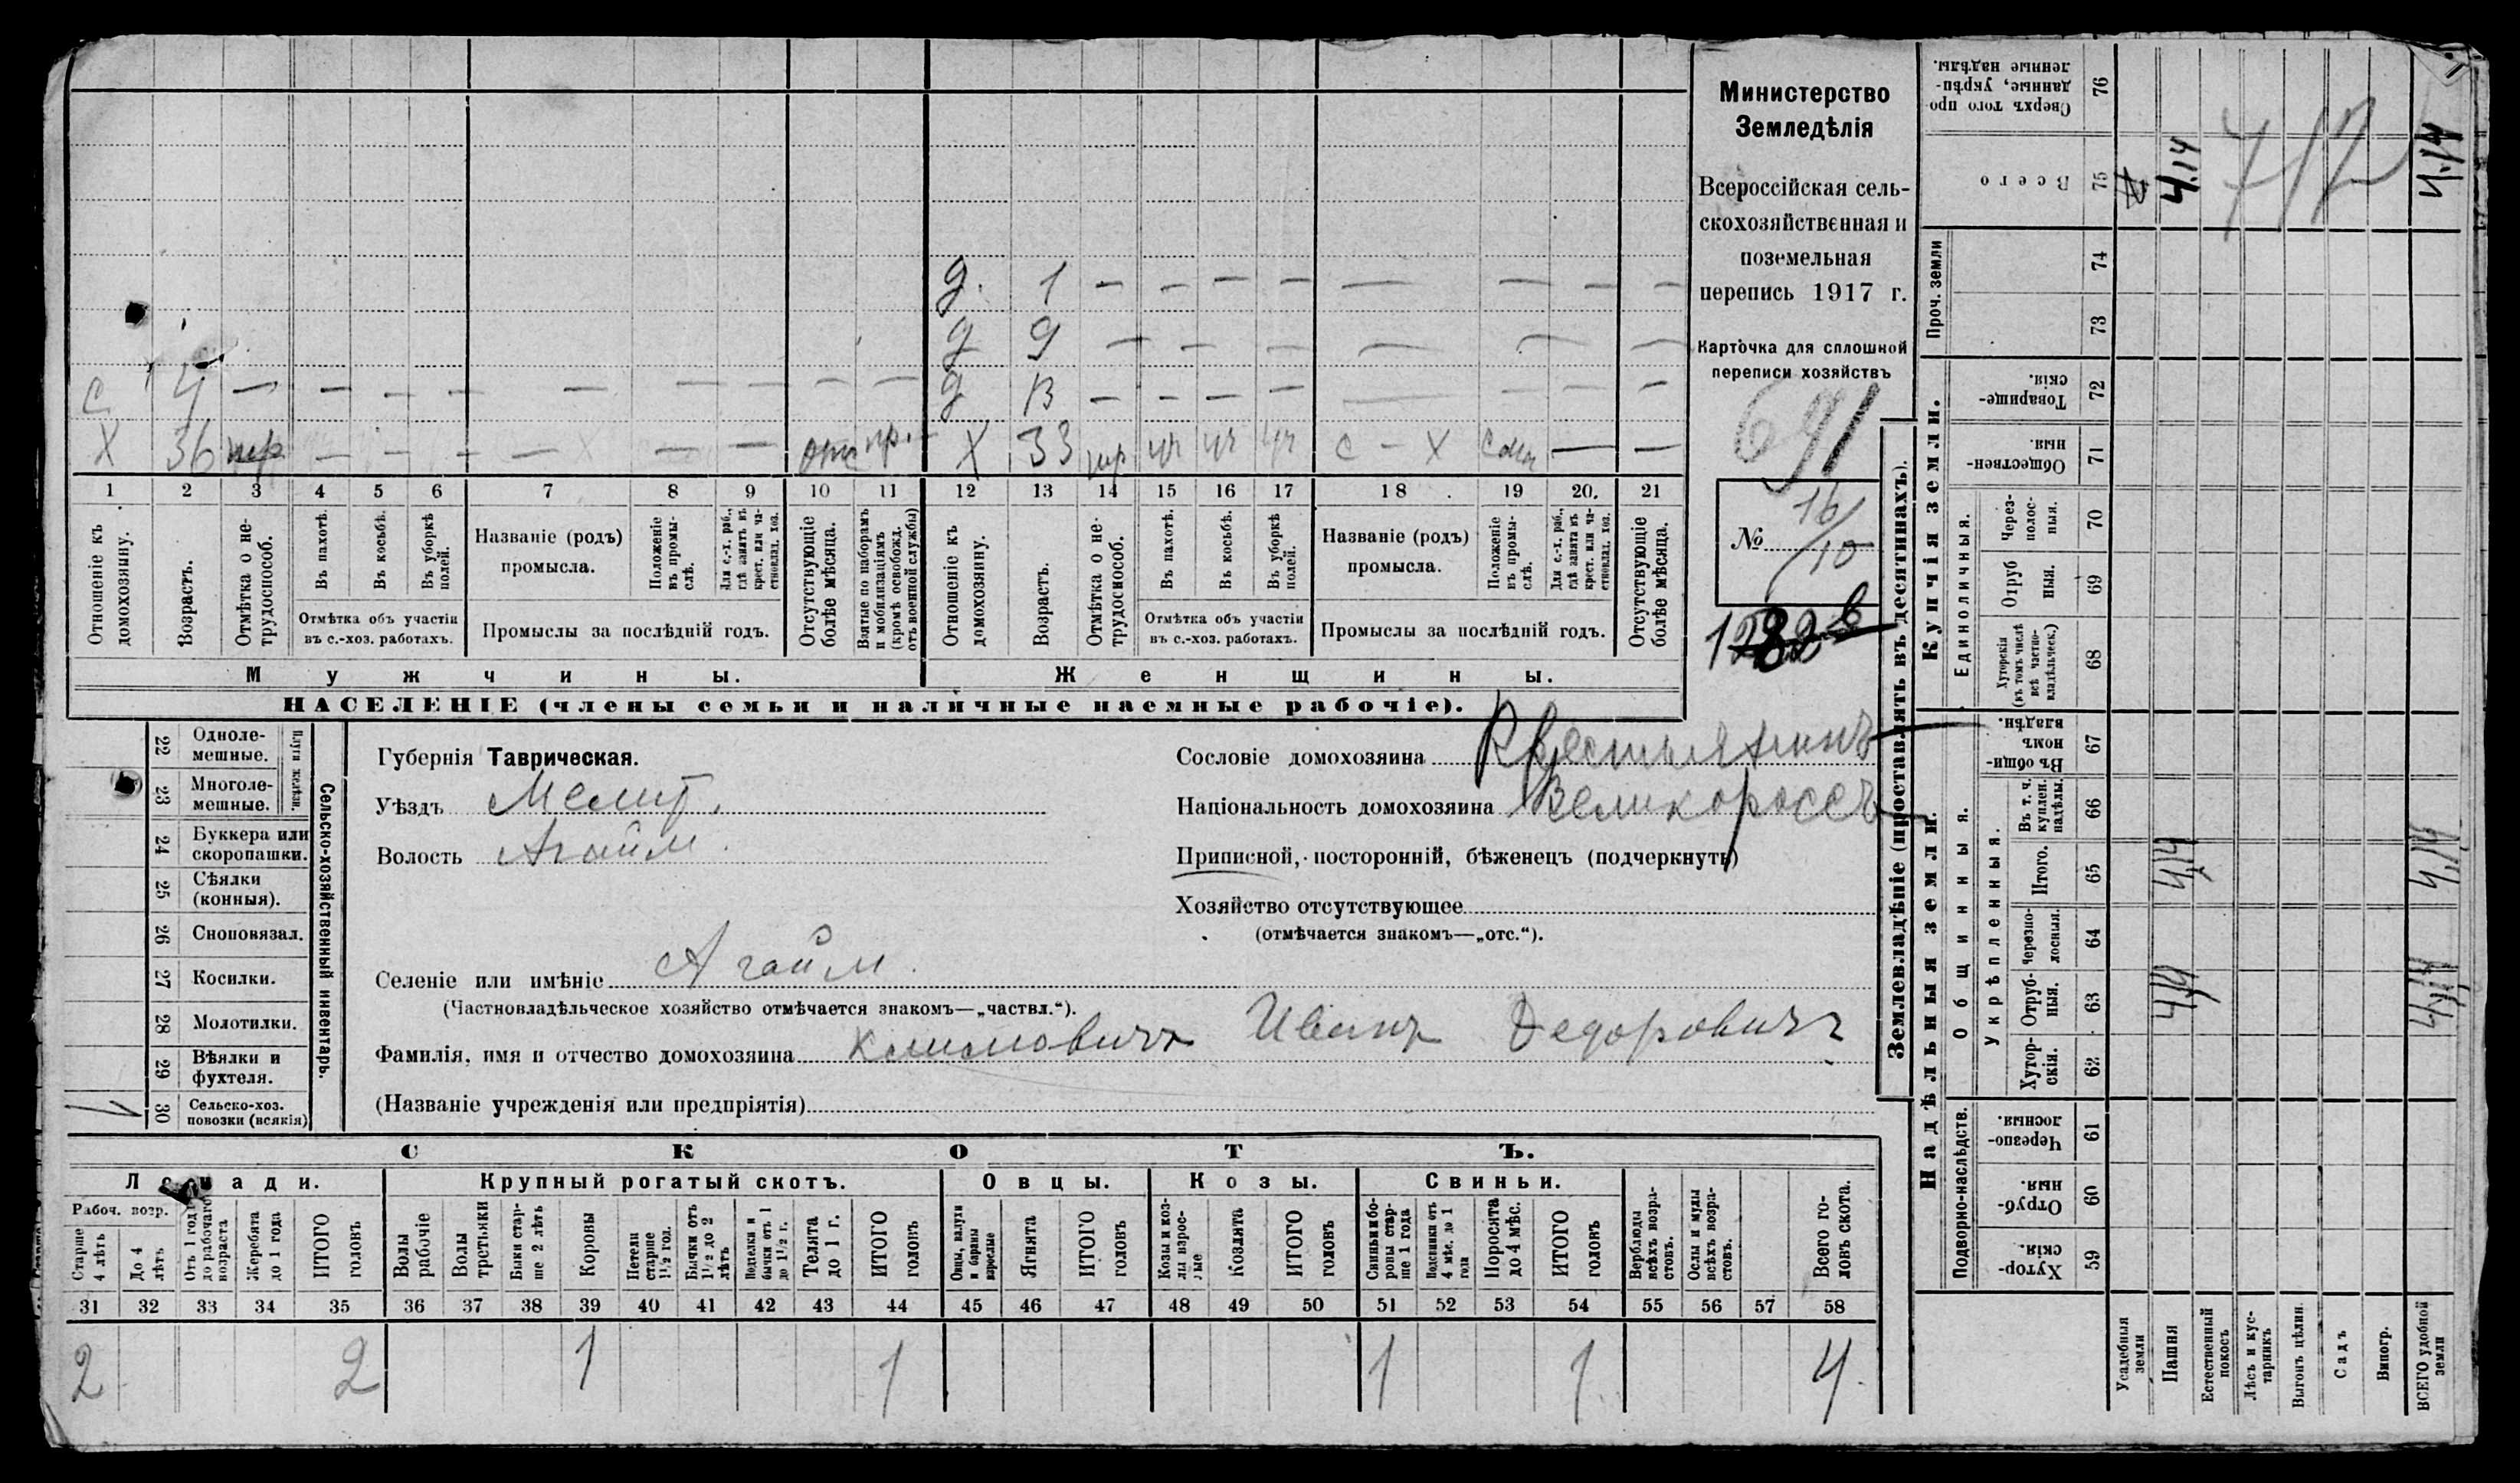 д. 1 — — — — — — — —
д 9 — — — — — —
с 4 — — — — — — — — — д 13 — — — — — — — —
х 36 — — — — — — отс пр. — х 33 уч уч уч с — х — —
1 2 3 4 5 6 7 8 9 10 11 12 13 14 15 16 17 18 19 20. 21
Отношеніе къ домохозяину.
Возрастъ.
Отмѣтка о не-трудоспособ.
Въ пахотѣ.
Въ косьбѣ.
Въ уборкѣ полей.
Отмѣтка объ участіи
въ с.-хоз. работахъ.
Названіе (родъ)
промысла.
Положеніе въ промы-слѣ.
Для с.-х. раб., гдѣ занятъ въ крест. или ча-стновлад. хоз.
Промыслы за послѣдній годъ.
Отсутствующіе болѣе мѣсяца.
Взятые по наборамъ и мобилизаціямъ (кромѣ освобожд. отъ военной службы)
Отношеніе къ домохозяину.
Возрастъ.
Отмѣтка о не-трудоспособ.
Въ пахотѣ.
Въ косьбѣ.
Въ уборкѣ полей.
Отмѣтка объ участіи
въ с.-хоз. работахъ.
Названіе (родъ)
промысла.
Положеніе въ промы-слѣ.
Для с.-х. раб., гдѣ занята въ крест. или ча-стновлад. хоз.
Промыслы за послѣдній годъ.
Отсутствующіе болѣе мѣсяца.
Мужчины. Женщины.
НАСЕЛЕНІЕ (члены семьи и наличные наемные рабочіе).
Министерство
Земледѣлія
Всероссійская сель-
скохозяйственная и
поземельная
перепись 1917 г.
Карточка для сплошной
переписи хозяйствъ
691
№ 16/10
22 Одноле-мешные.
23 Многоле-мешные.
Плуги желѣзн.
24 Буккера или скоропашки.
25 Сѣялки (конныя).
26 Сноповязал.
27 Косилки.
28 Молотилки.
29 Вѣялки и фухтеля.
30 Сельско-хоз. повозки (всякія) 1
Сельско-хозяйственный инвентарь.
Губернія Таврическая.
Уѣздъ Мелит.
Волость Агайм.
Селеніе или имѣніе Агайм.
(Частновладѣльческое хозяйство отмѣчается знакомъ—„частвл.“).
Фамилія, имя и отчество домохозяина Климовичъ Иванъ Федоровичъ
(Названіе учрежденія или предпріятія)
Сословіе домохозяина Крестьянинъ
Національность домохозяина Великороссъ
Приписной, посторонній, бѣженецъ (подчеркнуть)
Хозяйство отсутствующее
(отмѣчается знакомъ—„отс.“).
СКОТЪ.
Лошади. Крупный рогатый скотъ. Овцы. Козы. Свиньи.
Рабоч. возр.
Старше 4 лѣтъ
До 4 лѣтъ
Отъ 1 года до рабочаго возраста
Жеребята до 1 года
ИТОГО головъ
Волы рабочіе
Волы третьяки
Быки стар-ше 2 лѣтъ
Коровы
Нетели старше 1½ год.
Бычки отъ 1½ до 2 лѣтъ
Подтелки и бычки отъ 1 до 1½ г.
Телята до 1 г.
ИТОГО головъ
Овцы, валухи и бараны взрослые
Ягнята
ИТОГО головъ
Козы и коз-лы взрос-лые
Козлята
ИТОГО головъ
Свиньи бо-ровы стар-ше 1 года
Подсвинки отъ 4 мѣс. до 1 года
Поросята до 4 мѣс.
ИТОГО головъ
Верблюды всѣхъ возра-стовъ.
Ослы и мулы всѣхъ возра-стовъ.
Всего го-ловъ скота.
31 32 33 34 35 36 37 38 39 40 41 42 43 44 45 46 47 48 49 50 51 52 53 54 55 56 57 58
2 2 1 1 1 1 4.
Землевладѣніе (проставлять въ десятинахъ).
Надѣльныя земли. Купчія земли. Проч. земли
Подворно-наслѣдств. Общинныя. Единоличныя.
Укрѣпленныя.
Хутор-скія. 59
Отруб-ныя. 60
Черезпо-лосныя. 61
Хутор-скія. 62
Отруб-ныя. 63
Черезпо-лосныя. 64
Итого. 65
Въ т. ч. куплен. надѣлы. 66
Въ общин-номъ владѣн. 67
Хуторскія (въ томъ числѣ всѣ частно-владѣльческ.) 68
Отруб ныя. 69
Через-полос-ныя. 70
Обществен-ныя. 71
Товарище-скія. 72
73
74
Всего 75
Сверхъ того про данные, укрѣп-ленные надѣлы. 76
Усадебныя земли
Пашня 4,14 4,14 4.14
Естественный покосъ
Лѣсъ и кус-тарникъ
Выгонъ цѣлин.
Садъ
Виногр.
ВСЕГО удобной земли 4,14 4,14 4.14